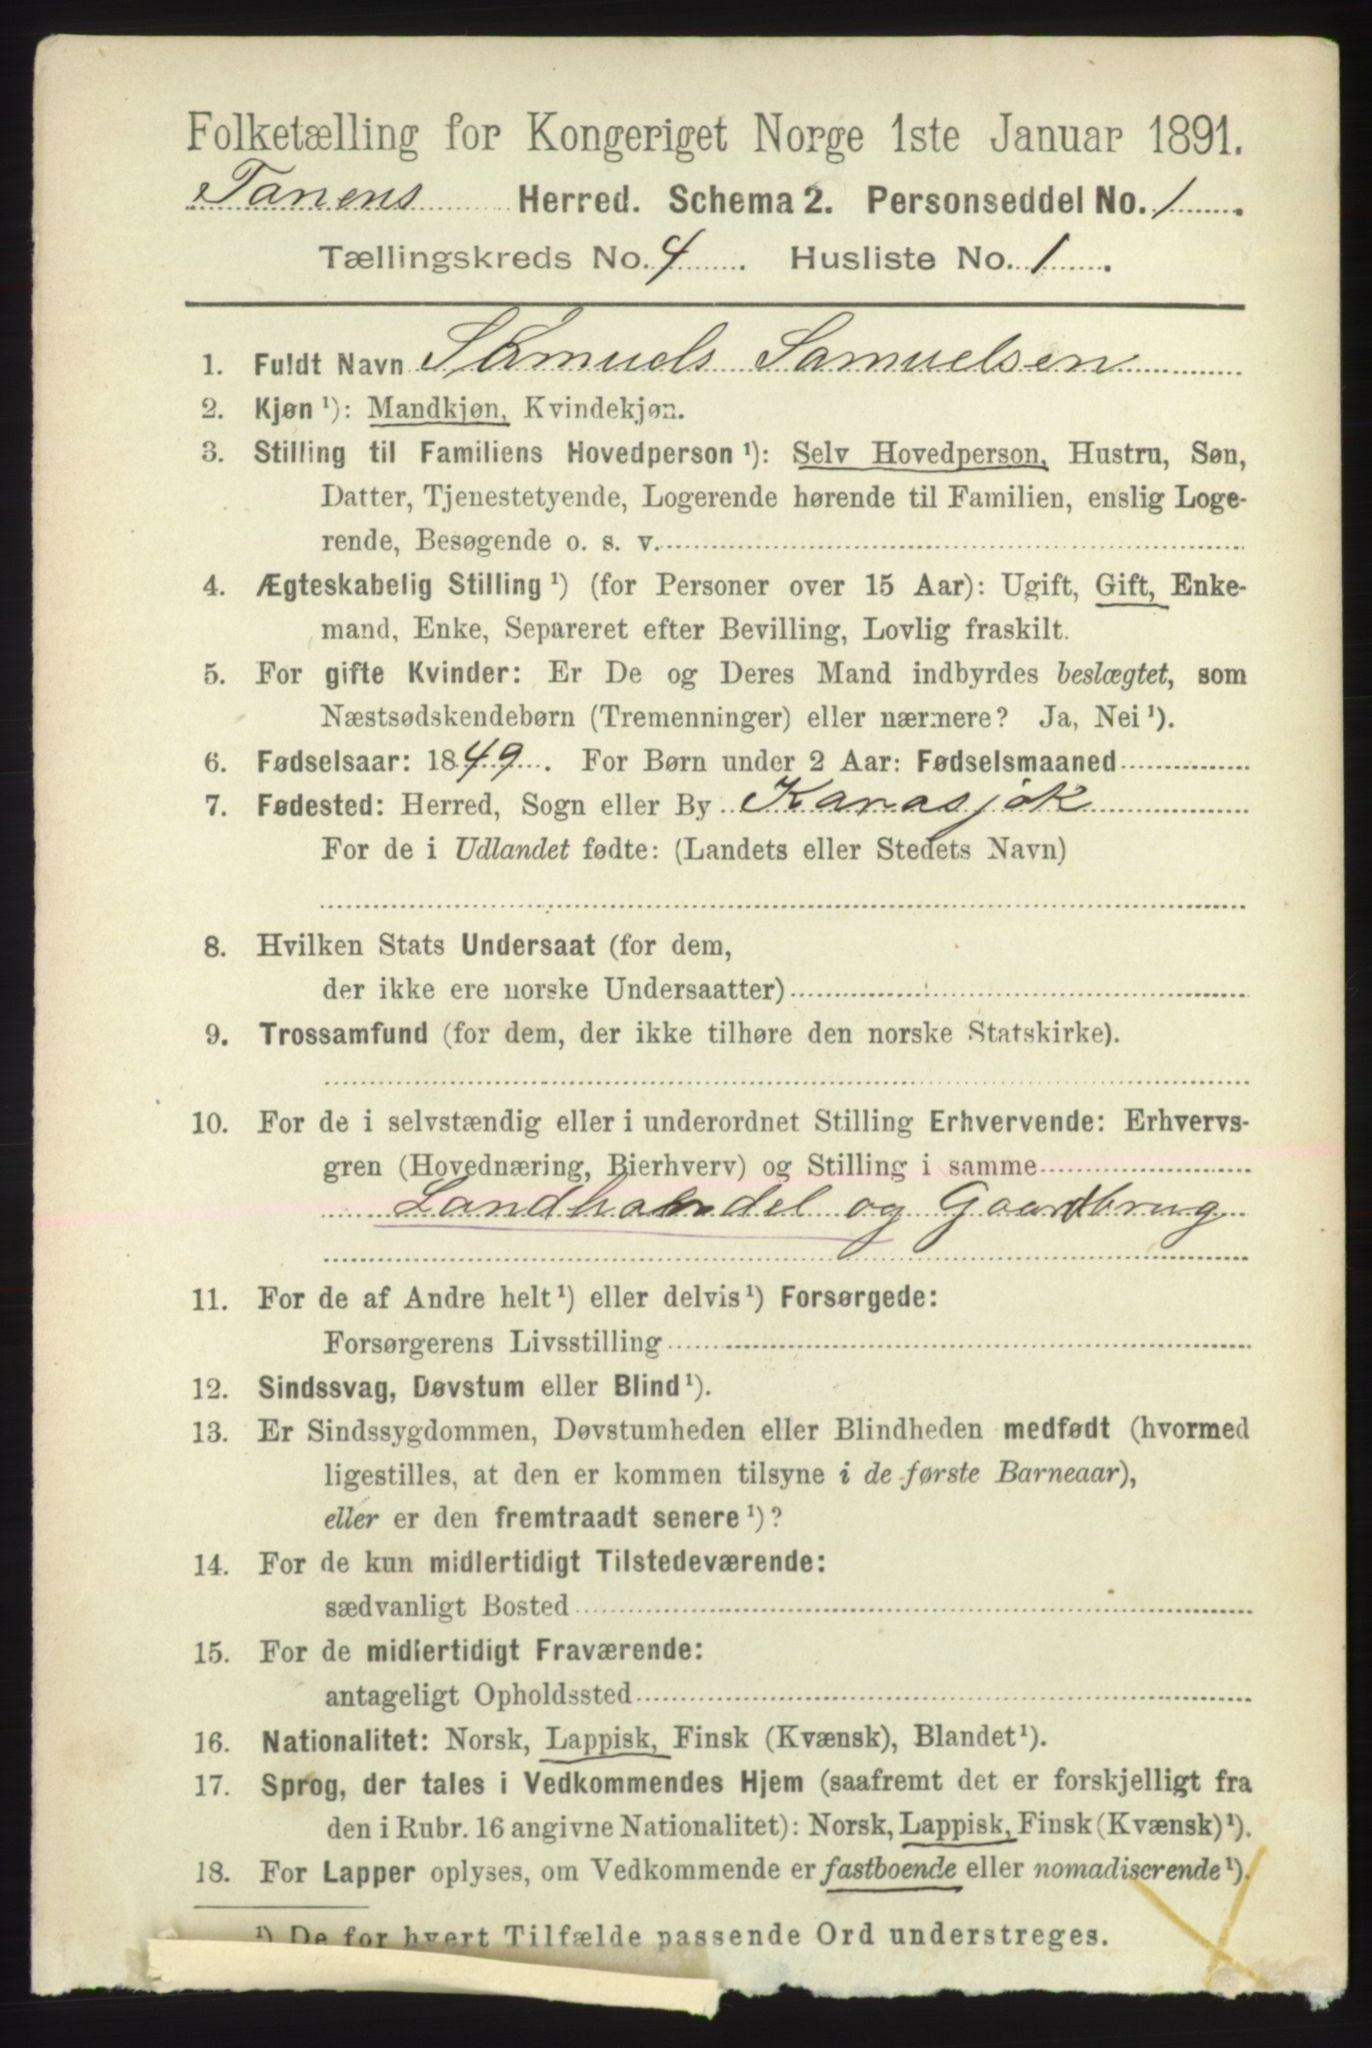 Folketælling for Kongeriget Norge 1ste Januar 1891.
Tanens Herred. Schema 2. Personseddel No. 1
Tællingskreds No. 4 Husliste No. 1
1. Fuldt Navn Samuels Samuelsen
2. Kjøn ¹): Mandkjøn, Kvindekjøn.
3. Stilling til Familiens Hovedperson ¹): Selv Hovedperson, Hustru, Søn,
Datter, Tjenestetyende, Logerende hørende til Familien, enslig Loge-
rende, Besøgende o. s. v.
4. Ægteskabelig Stilling ¹) (for Personer over 15 Aar): Ugift, Gift, Enke-
mand, Enke, Separeret efter Bevilling, Lovlig fraskilt.
5. For gifte Kvinder: Er De og Deres Mand indbyrdes beslægtet, som
Næstsødskendebørn (Tremenninger) eller nærmere? Ja, Nei ¹).
6. Fødselsaar: 1849. For Børn under 2 Aar: Fødselsmaaned
7. Fødested: Herred, Sogn eller By Karasjok
For de i Udlandet fødte: (Landets eller Stedets Navn)
8. Hvilken Stats Undersaat (for dem,
der ikke ere norske Undersaatter)
9. Trossamfund (for dem, der ikke tilhøre den norske Statskirke).
10. For de i selvstændig eller i underordnet Stilling Erhvervende: Erhvervs-
gren (Hovednæring, Bierhverv) og Stilling i samme
Landhandel og Gaardbrug
11. For de af Andre helt ¹) eller delvis ¹) Forsørgede:
Forsørgerens Livsstilling
12. Sindssvag, Døvstum eller Blind ¹).
13. Er Sindssygdommen, Døvstumheden eller Blindheden medfødt (hvormed
ligestilles, at den er kommen tilsyne i de første Barneaar),
eller er den fremtraadt senere ¹)?
14. For de kun midlertidigt Tilstedeværende:
sædvanligt Bosted
15. For de midlertidigt Fraværende:
antageligt Opholdssted
16. Nationalitet: Norsk, Lappisk, Finsk (Kvænsk), Blandet ¹).
17. Sprog, der tales i Vedkommendes Hjem (saafremt det er forskjelligt fra
den i Rubr. 16 angivne Nationalitet): Norsk, Lappisk, Finsk (Kvænsk) ¹).
18. For Lapper oplyses, om Vedkommende er fastboende eller nomadiserende ¹).
¹) De for hvert Tilfælde passende Ord understreges.